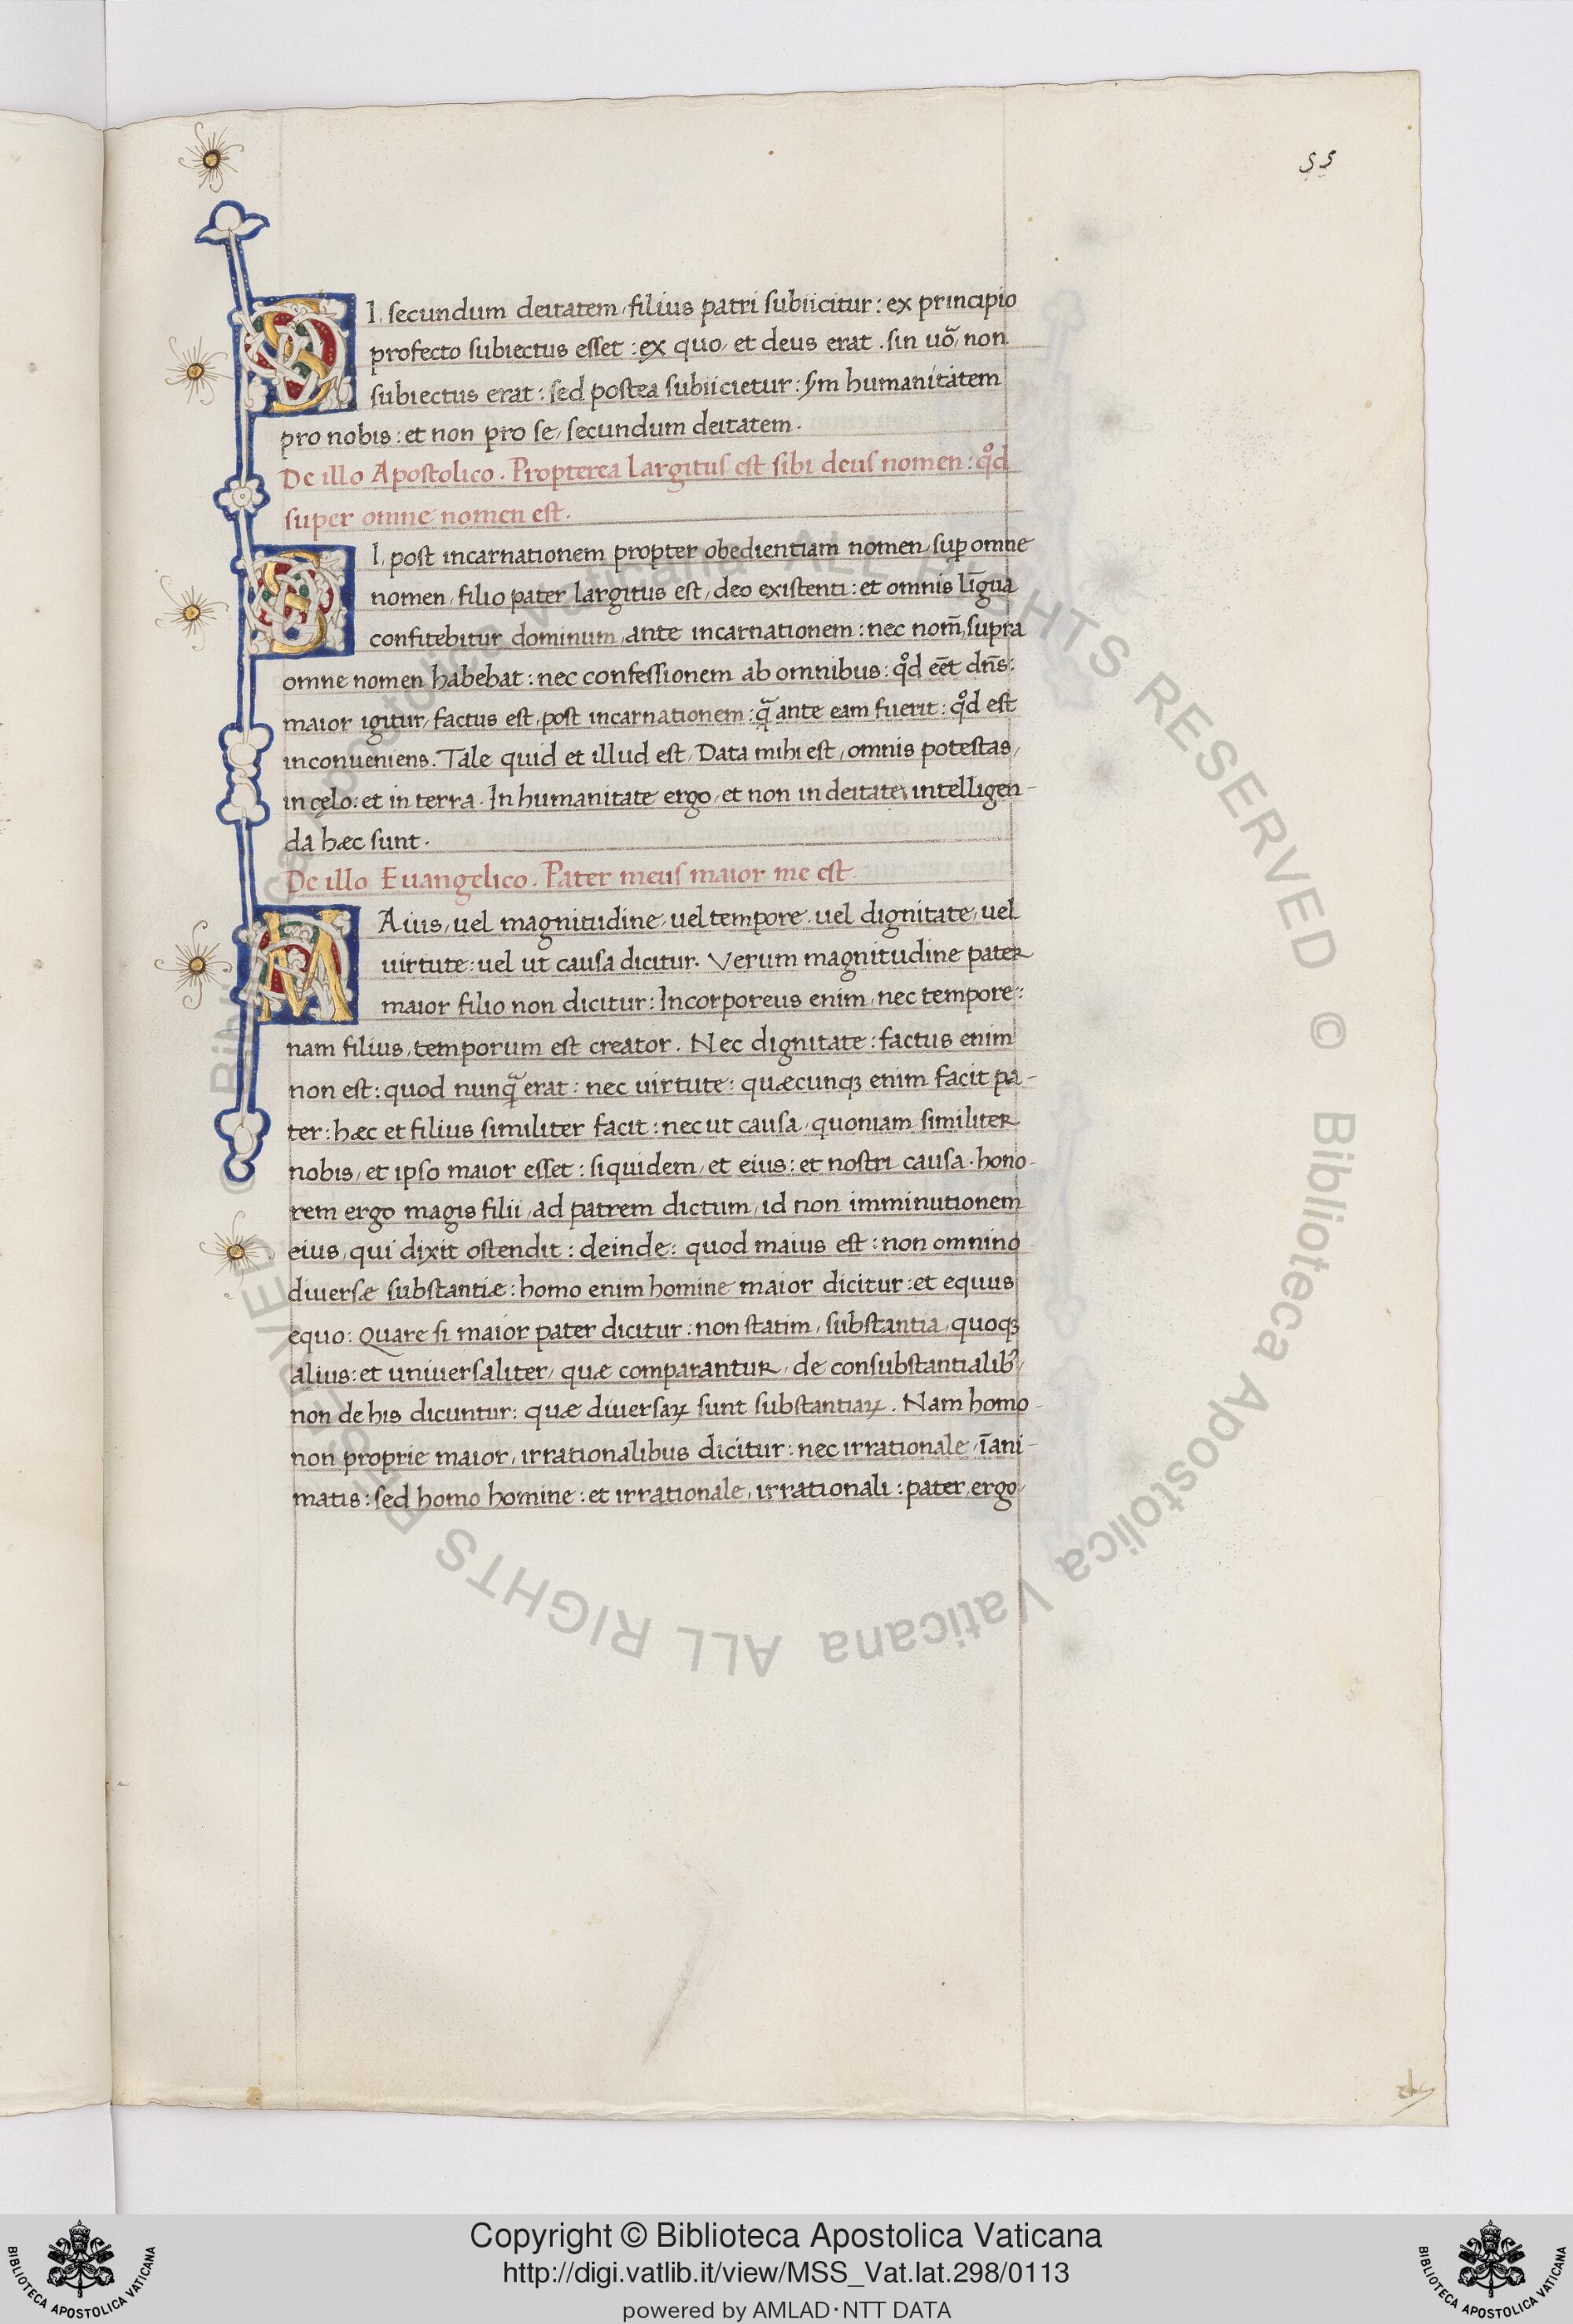 55
SI, secundum deitatem, filius patri subiicitur: ex principio
profecto subiectus esset: ex quo, et deus erat. sin uõ, non
subiectus erat: sed postea subiicietur: s̃m humanitatem
pro nobis: et non pro se, secundum deitatem.
De illo Apostolico. Propterea largitus est sibi deus nomen: qͦd
super omne nomen est.
SI, post incarnationem propter obedientiam nomen, suꝑ omne
nomen, filio pater largitus est, deo existenti: et omnis lĩgua
confitebitur dominum, ante incarnationem: nec nom̃, supra
omne nomen habebat: nec confessionem ab omnibus: qͦd eẽt dñs:
maior igitur, factus est, post incarnationem: q̃ ante eam fuerit: qͦd est
inconueniens. Tale quid et illud est, Data mihi est, omnis potestas,
in cęlo: et in terra. In humanitate ergo, et non in deitate, intelligen-
da hæc sunt.
De illo Euangelico. Pater meus maior me est.
MAius, uel magnitudine, uel tempore, uel dignitate, uel
uirtute: uel ut causa dicitur. Verum magnitudine pater
maior filio non dicitur: Incorporeus enim, nec tempore:
nam filius, temporum est creator. Nec dignitate: factus enim
non est: quod nunq̃ erat: nec uirtute: quæcunqꝫ enim facit pa-
ter: hæc et filius similiter facit: nec ut causa, quoniam similiter
nobis, et ipso maior esset: siquidem, et eius: et nostri causa. hono-
rem ergo magis filii, ad patrem dictum, id non imminutionem
eius, qui dixit ostendit: deinde: quod maius est: non omnino
diuersæ substantiæ: homo enim homine maior dicitur: et equus
equo: Quare si maior pater dicitur: non statim, substantia, quoqꝫ
alius: et uniuersaliter, quæ comparantur, de consubstantialibꝰ,
non de his dicuntur: quæ diuersaꝝ sunt substantiaꝝ. Nam homo
non proprie maior, irrationalibus dicitur: nec irrationale, ĩani-
matis: sed homo homine: et irrationale, irrationali: pater, ergo,
© Biblioteca Apostolica Vaticana ALL RIGHTS RESERVED © Biblioteca Apostolica Vaticana ALL RIGHTS RESERVED
BIBLIOTECA APOSTOLICA VATICANA
Copyright © Biblioteca Apostolica Vaticana
http://digi.vatlib.it/view/MSS_Vat.lat.298/0113
powered by AMLAD·NTT DATA
BIBLIOTECA APOSTOLICA VATICANA